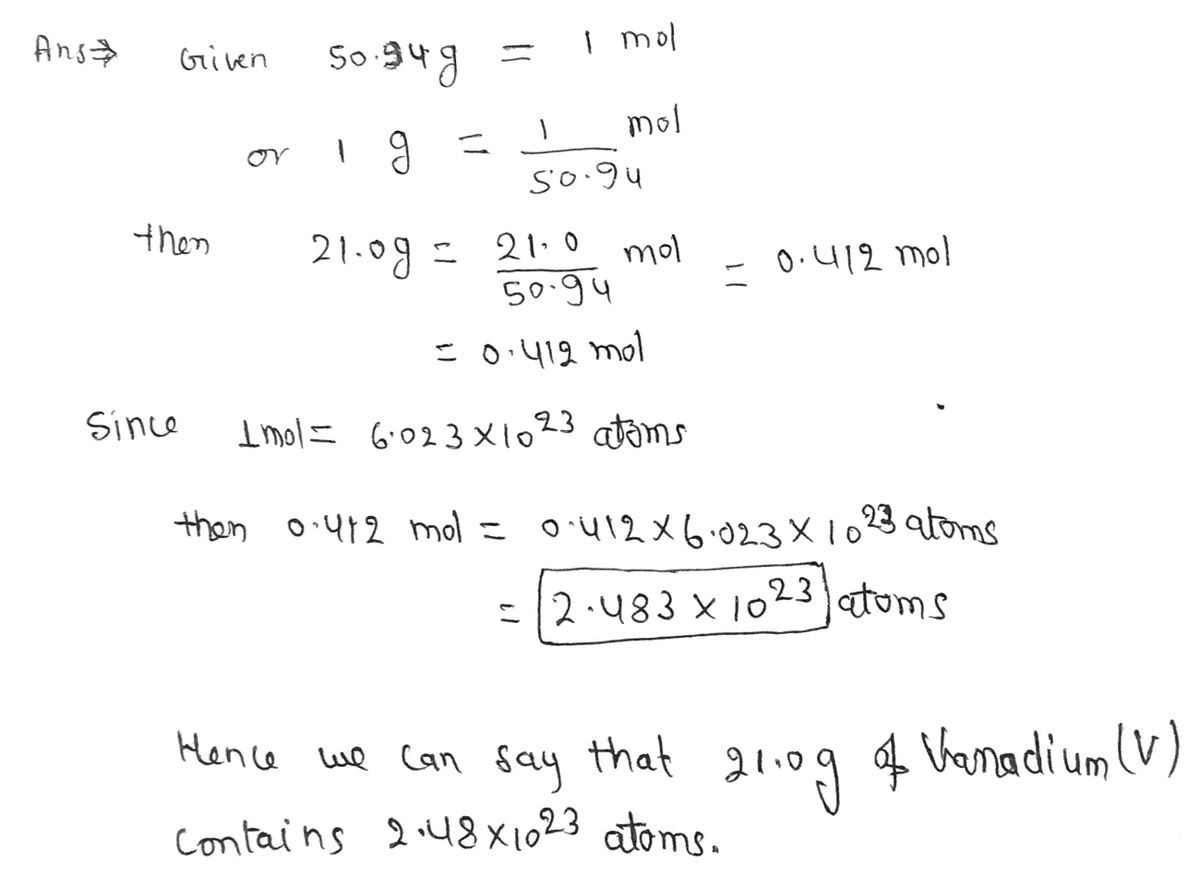 Ans⇒ Given 50.94g = 1 mol
or 1 g = 1/50.94 mol
then 21.0g = 21.0/50.94 mol = 0.412 mol
= 0.412 mol
Since 1mol = 6.023×10²³ atoms
then 0.412 mol = 0.412×6.023×10²³ atoms
= 2.483 × 10²³ atoms
Hence we can say that 21.0g of Vanadium(V)
contains 2.48×10²³ atoms.